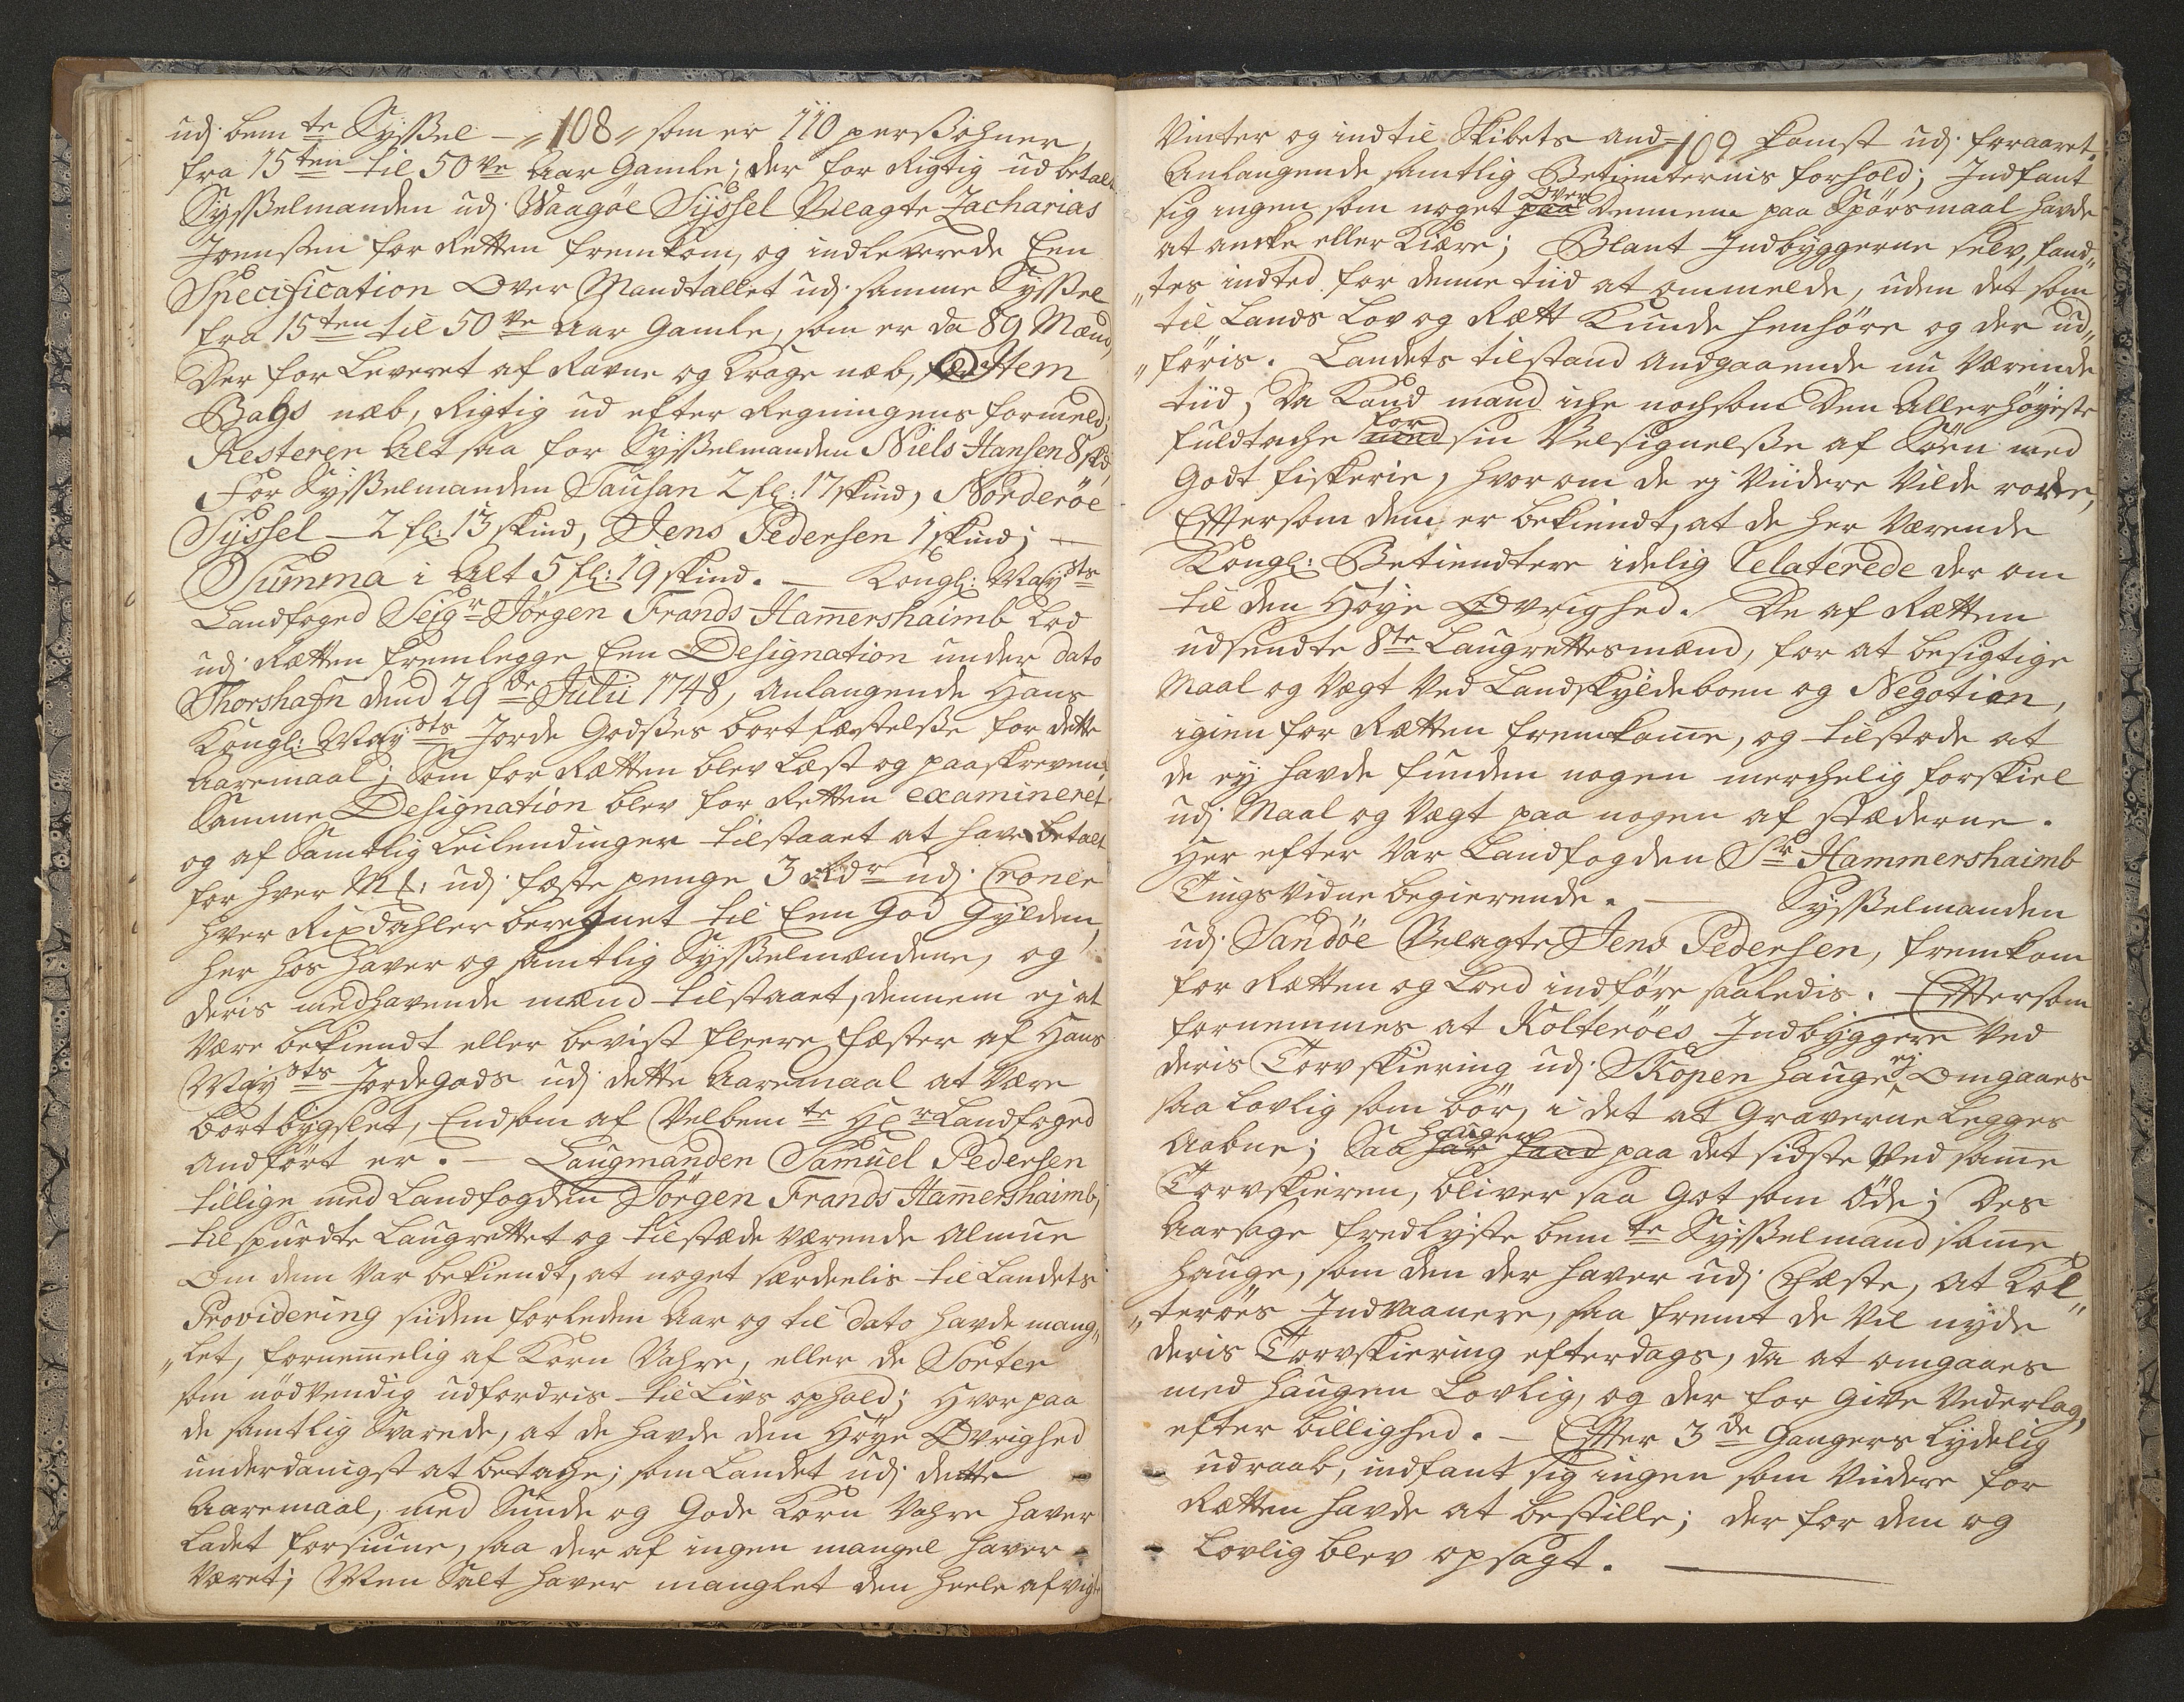 udj bem te Sysßel — „108„ som er 110 persohner,
fra 15 ten til 50 ve Aar Gamle; der for Rigtig ud betalt
Sysßelmanden udj Waagöe Syssel Velagte Zacharias
Joensßen for Retten fremkom, og indleverede Een
Specification Over Mandtallet udj samme Sysßel
fra 15 ten til 50 ve Aar Gamle, som er da 89 Mænd,
Der for Leveret af Ravne og Krage næb, Item
Bags næb, Rigtig ud efter Regningens formeld;
Resterer Alt saa for Sysßelmanden Niels Hansen 8 skd,
For Sysßelmanden Tausan 2 fl: 17 skind, Norderöe
Syssel — 2 fl: 13 skind, Jens Pedersen 1 skind; —
Summa i Alt 5 fl: 19 skind. — Kongl: May sts
Landfoged Seigr Jörgen Frands Hamershaimb Lod
udj Rætten fremlegge Een Designation under dato
Thorshafn dend 29 de Julii 1748, Anlangende Hans
Kongl: May sts Jorde Godses bortfæstelsße for dette
Aaremaal; Som for Rætten blev Læst og paaskreven.
Samme Designation blev for Retten examineret
og af Samtlig Leilendinger tilstaaet at have betalt
for hver Mk: udj fæste penge 3 Rdr udj Croner
hver Rixdahler beregnet til Een God Gylden,
her hos haver og samtlig Sysßelmændene, og
deris medhavende mænd tilstaaet, dennem ej at
Være bekiendt eller bevist fleere fæster af Hans
May sts Jordegods udj dette Aaremaal at Være
bortbygslet, End som af Velbem te Hr Landfoged
Andfört er. — Laugmanden Samuel Pedersen
tillige med Landfogden Jörgen Frands Hamershaimb,
tilspurdte Laugrettet og tilstæde værende Almue
Om dem Var bekiendt, at noget særdeelis til Landets
Providering siden forleden Aar og til dato havde mang„
„let, fornemelig af Korn Vahre, eller de Sorter
som nödvendig udfordris til Livs ophold; Hvor paa
de samtlig Svarede, at de havde den Höye Øvrighed
underdanigst at betache; som Landet udj dette
Aaremaal, med Sunde og Gode Korn Vahre haver
Ladet forsiune, saa der af ingen mangel haver
Været; Men Salt haver manglet den heele afvigte
Vinter og indtil Skibets And= 109 komst udj foraaret.
Anlangende samtlig Betienternis forhold; Indfant
sig ingen som noget paa Over Dennem paa Spörsmaal havde
at ancke eller Kiære; Blant Indbyggerne selv, fand„
„tes indted for denne tiid at ommelde, uden det som
til Lands Lov og Rætt Kunde henhöre og der ud„
„föris. Landets tilstand Andgaaende nu Værende
tiid, Da Kand mand iche nochsom Den Allerhöyeste
fuldtache med for sin Velsignelsße af Söen med
Godt fiskerie, Hvorom de ej Viidere Vilde rörer,
Eftersom dem er bekiendt, at de her Værende
Kongl: Betiendtere idelig Relaterede der om
til den Höye Øvrighed. De af Rætten
udsendte 8te Laugrettesmænd, for at besigtige
Maal og Vægt Ved Landskyldeboen og Negotien,
igien for Rætten fremkome, og tilstode at
de ey havde funden nogen merchelig forskiel
udj Maal og Vægt paa nogen af stæderne.
Her efter Var Landfogden Sr Hammershaimb
TingsVidne begierende. — Sysßelmanden
udj Sandöe Velagte Jens Pedersen, fremkom
for Rætten og Loed indföre saaledis. Eftersom
fornemmes at Kolteröes Indbyggere Ved
deris Torvskiering udj Skopen Hauge ej Omgaaes
saa Lovlig som bör, i det at Graverne Legges
Aabne; Saa har hand Haugen paa det sidste Ved same
Torvskieren, bliver saa Got som Öde; Des
Aarsage fredlyste bem te Sysßelmand same
Hauge, som den der haver udj Fæste, at Kol„
„teröes Indvaanere, saa fremt de Vil nyde
deris Torvskiering efterdags, da at omgaaes
med Haugen Lovlig, og der for Give Vederlag,
efter billighed. — Efter 3 de Ganges lydelig
udraab, indfant sig ingen som Viidere for
Rætten havde at bestille; der for den og
Lovlig blev opsagt. —